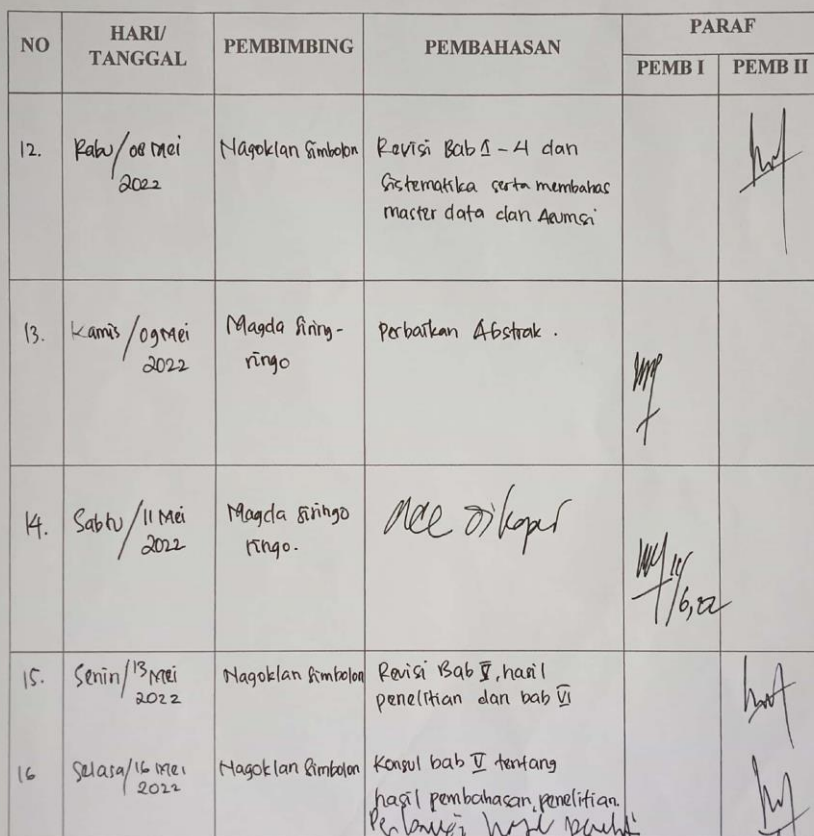 NO
HARI/
TANGGAL
PEMBIMBING
PEMBAHASAN
PARAF
PEMB I
PEMB II
12.
Rabu/08 Mei
2022
Nagoklan Simbolon
Revisi Bab 1 - 4 dan
Sistematika serta membahas
master data dan Asumsi
13.
Kamis/09 Mei
2022
Magda Siring-
ringo
Perbaikan Abstrak.
14.
Sabtu/11 Mei
2022
Magda Siringo
ringo.
Acc
11/6,22
15.
Senin/13 Mei
2022
Nagoklan Simbolon
Revisi Bab V, hasil
penelitian dan bab VI
16
Selasa/16 Mei
2022
Nagoklan Simbolon
Konsul bab V tentang
hasil pembahasan, penelitian.